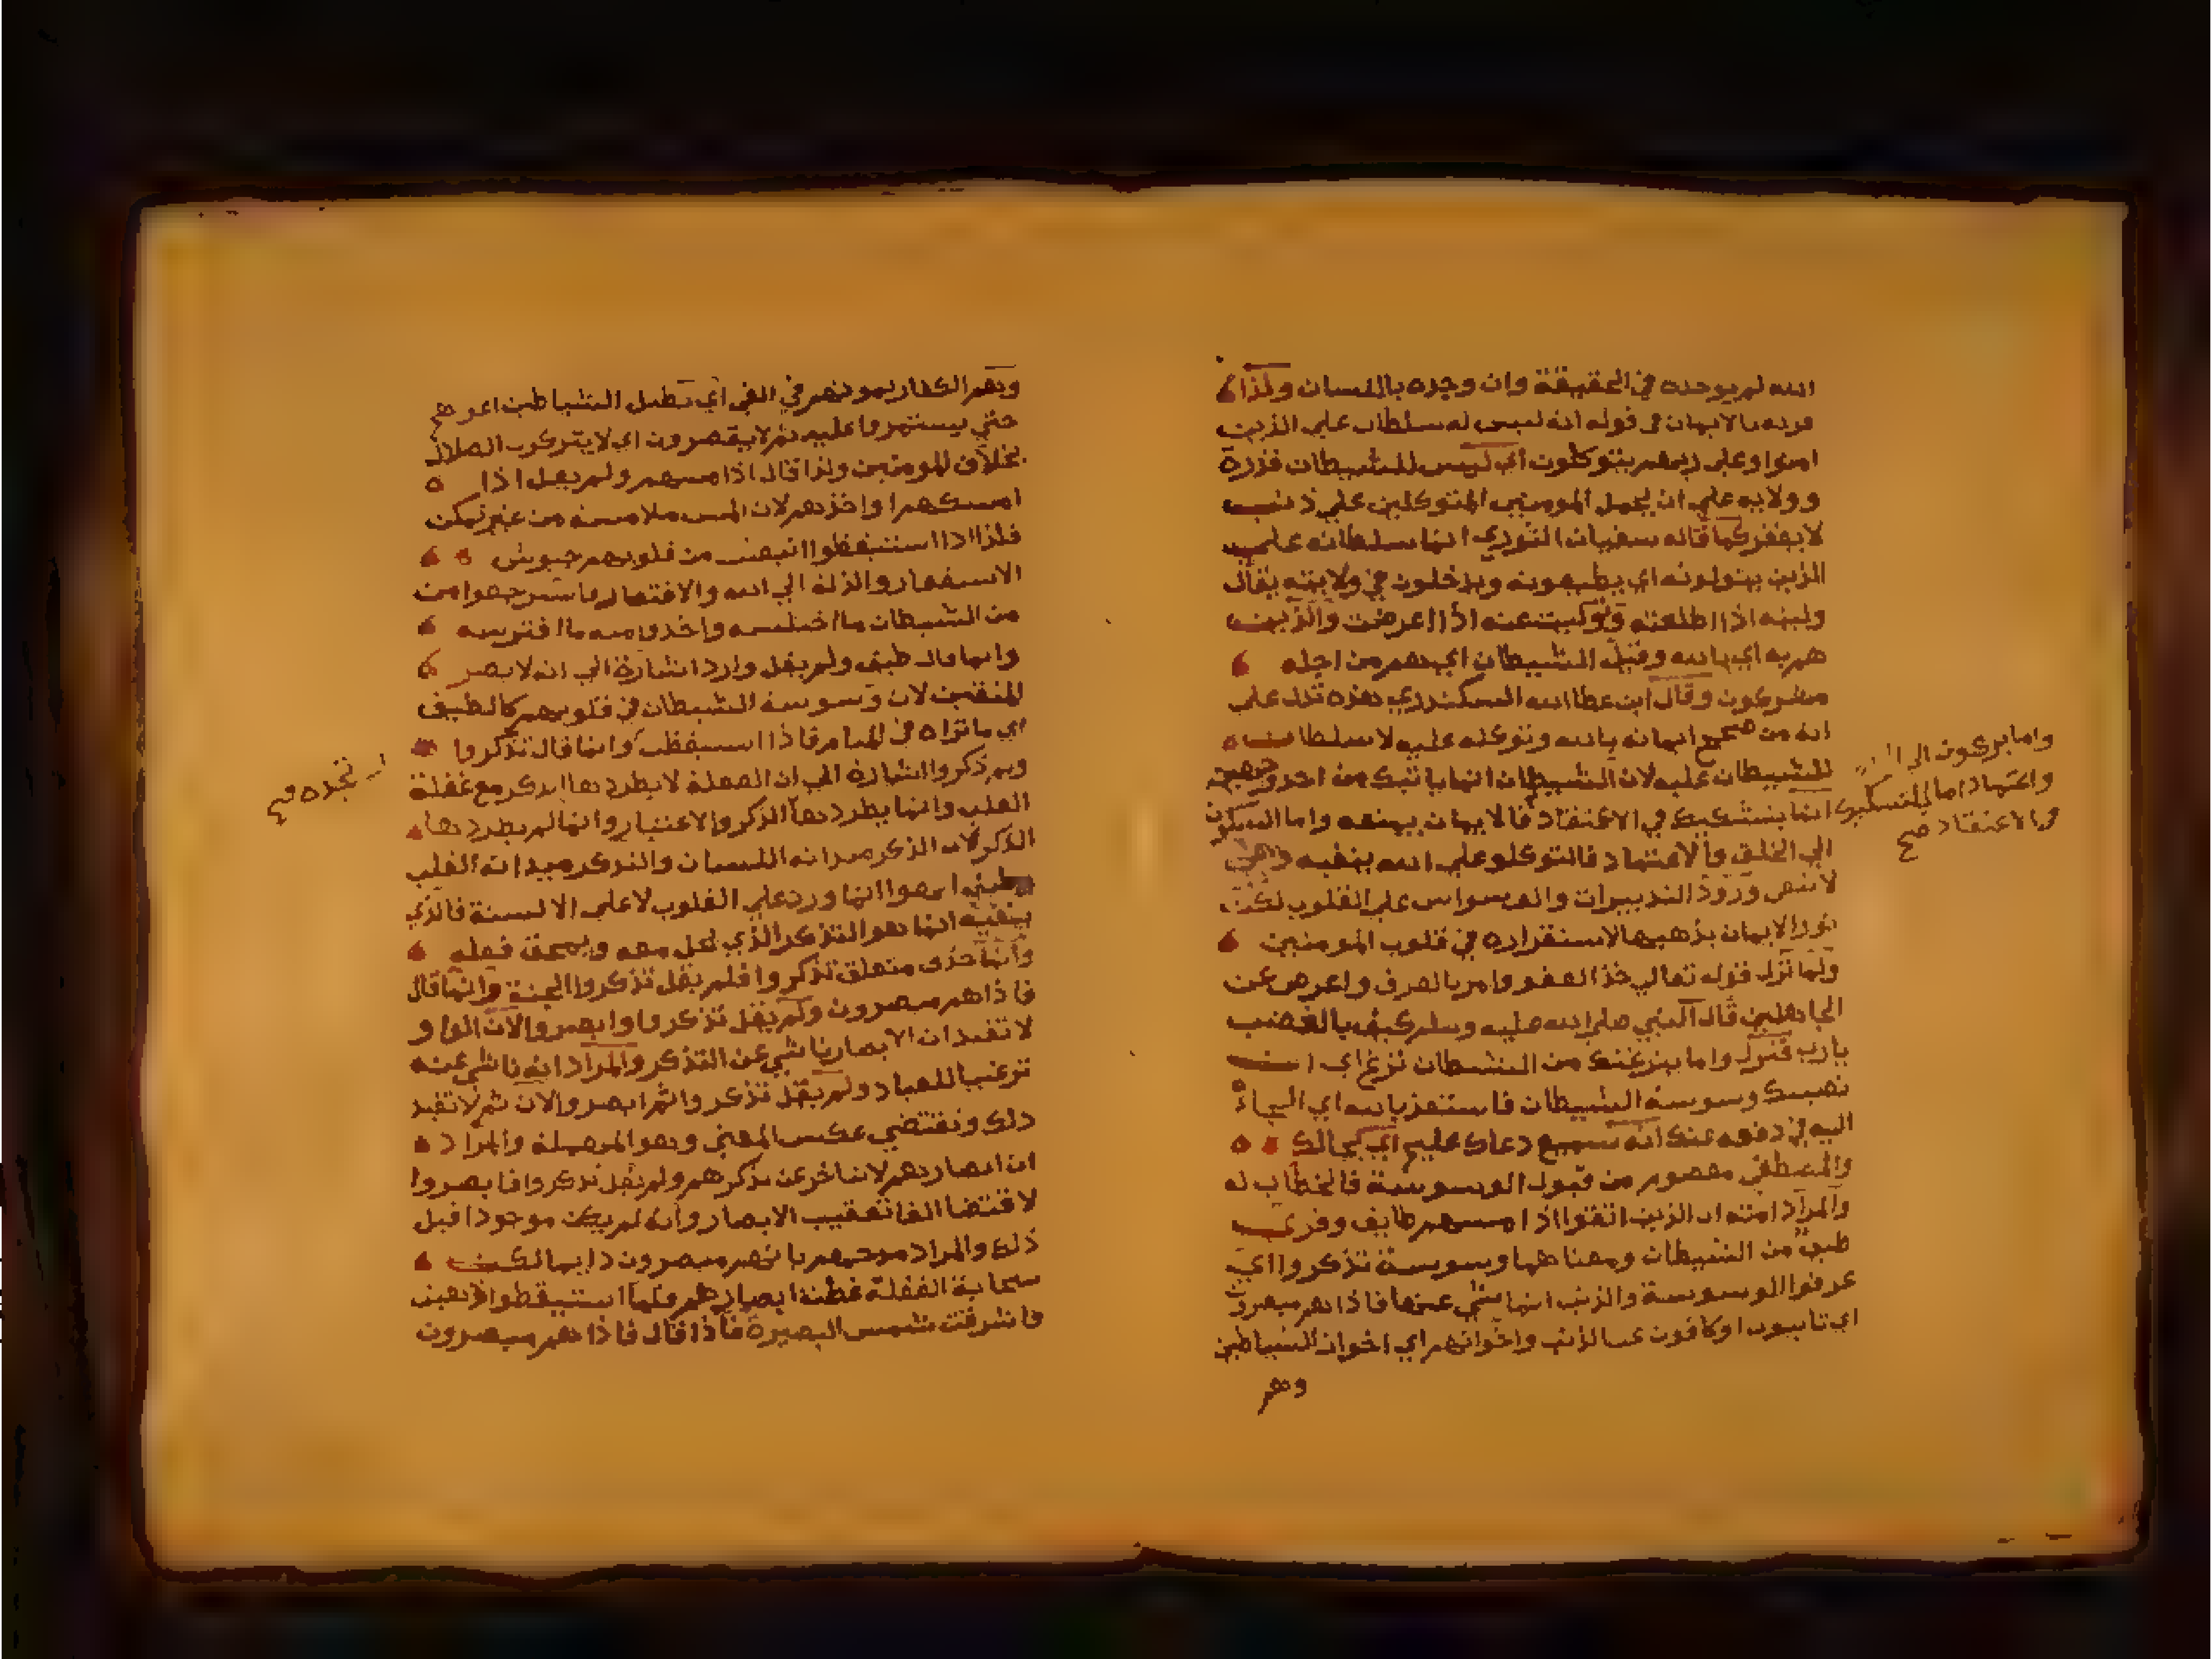 الله لم يوحده في الحقيقة وان وحده باللسان ولذا
بالايمان في قوله انه ليس له سلطان علي الذين
امنوا وعلي ربهم يتوكلون اي ليس للشيطان قدرة
وولايه علي ان يحمل المومنين المتوكلين علي ذنب
لا يغفر كما قاله سفيان الثوري انما سلطانه علي
الذين يتولونه اي يطيعونه ويدخلون في ولايته يقال
وليته اذا اطعته وتوليت عنه اذا اعرضت والذين
هم به اي بالله وقيل الشيطان اي هم من اجله
مشركون وقال ابن عطا الله السكندري هذه تدل علي
انه من صحح ايمانه بالله وتوكله عليه لا سلطان
للشيطان عليه لان الشيطان انما ياتيك من احد وجهين
اما بتشكيك في الاعتقاد فالايمان يمنعه واما السكون
الي الخلق والاعتماد فالتوكل علي الله ينفيه
لا تنفي ورود التدبيرات والوسواس علي القلوب لكن
نور الايمان يذهبها لاستقراره في قلوب المومنين
ولما نزل قوله تعالي خذ العفو وامر بالعرف واعرض عن
الجاهلين قال النبي صلي الله عليه وسلم كيف بالغضب
يارب فنزل واما ينزغنك من الشيطان نزغ اي
نصبك وسوسة الشيطان فاستعذ بالله اي التجاء
اليه في دفعه عنك انه سميع دعاك عليم اي بحالك
والمصطفي معصوم من قبول الوسوسة فالخطاب له
والمراد امته ان الذين اتقوا اذا مسهم طايف وقري
طيف من الشيطان ومعناهما وسوسة تذكروا اي
عرفوا الوسوسة والذنب انما عنها فاذا هم مبصرون
اي تايبون او كافون عن الذنب واخوانهم اي اخوان الشياطين
وهم
واما بركون الي
واعتماد اما بالتشكيك
والاعتقاد صح
وهم الكفار يمدونهم في الغي اي تطيل الشياطين اغواهم
حتي يستمروا عليه ثم لا يقصرون اي لا يتركون الضلال
بخلاف المومنين ولذا قال اذا مسهم ولم يقل اذا
امسكهم او اخذهم لان المس ملامسة من غير تمكن
فلذا اذا استيقظوا انبعث من قلوبهم جيوش
الاستغفار والذلة الي الله والافتقار فاسترجعوا من
من الشيطان ما اختلسه واخذوا منه ما افترسه
وانما قال طيف ولم يقل وارد اشارة الي انه لا يضر
المتقين لان وسوسة الشيطان في قلوبهم كالطيف
اي ما تراه في المنام فاذا استيقظت وانما قال تذكروا
ولم ذكروا اشارة الي ان الغفلة لا يطردها الذكر مع غفلة
القلب وانما يطردها الذكر والاعتبار وانما لم يطردها
الذكر لان الذكر ميدانه اللسان والتذكر ميدانه القلب
انما ورد علي القلوب لا علي الالسنة فالذي
ينفيه انما هو التذكر الذي يحل محله ويمحق فعله
وانما حذف متعلق تذكروا فلم يقل تذكروا الجنة وانما قال
فاذا هم مبصرون ولم يقل تذكروا وابصروا لان الواو
لا تفيد ان الابصار ناشي عن التذكر والمراد انه ناشي عنه
ترغيبا للعباد ولم يقل تذكروا ثم ابصروا لان ثم لا تفيد
ذلك وتقتضي عكس المعني وهو المهملة والمراد
ان ابصارهم لا يتاخر عن تذكرهم ولم يقل تذكروا فابصروا
لاقتضا الفا تعقيب الابصار وانه لم يكن موجودا قبل
ذلك والمراد مدحهم بانهم مبصرون دايما لكن
سحابة الغفلة غطت ابصارهم فلما استيقظوا ذهبت
واشرقت شمس البصيرة فاذا قال فاذا هم مبصرون
تجده صح